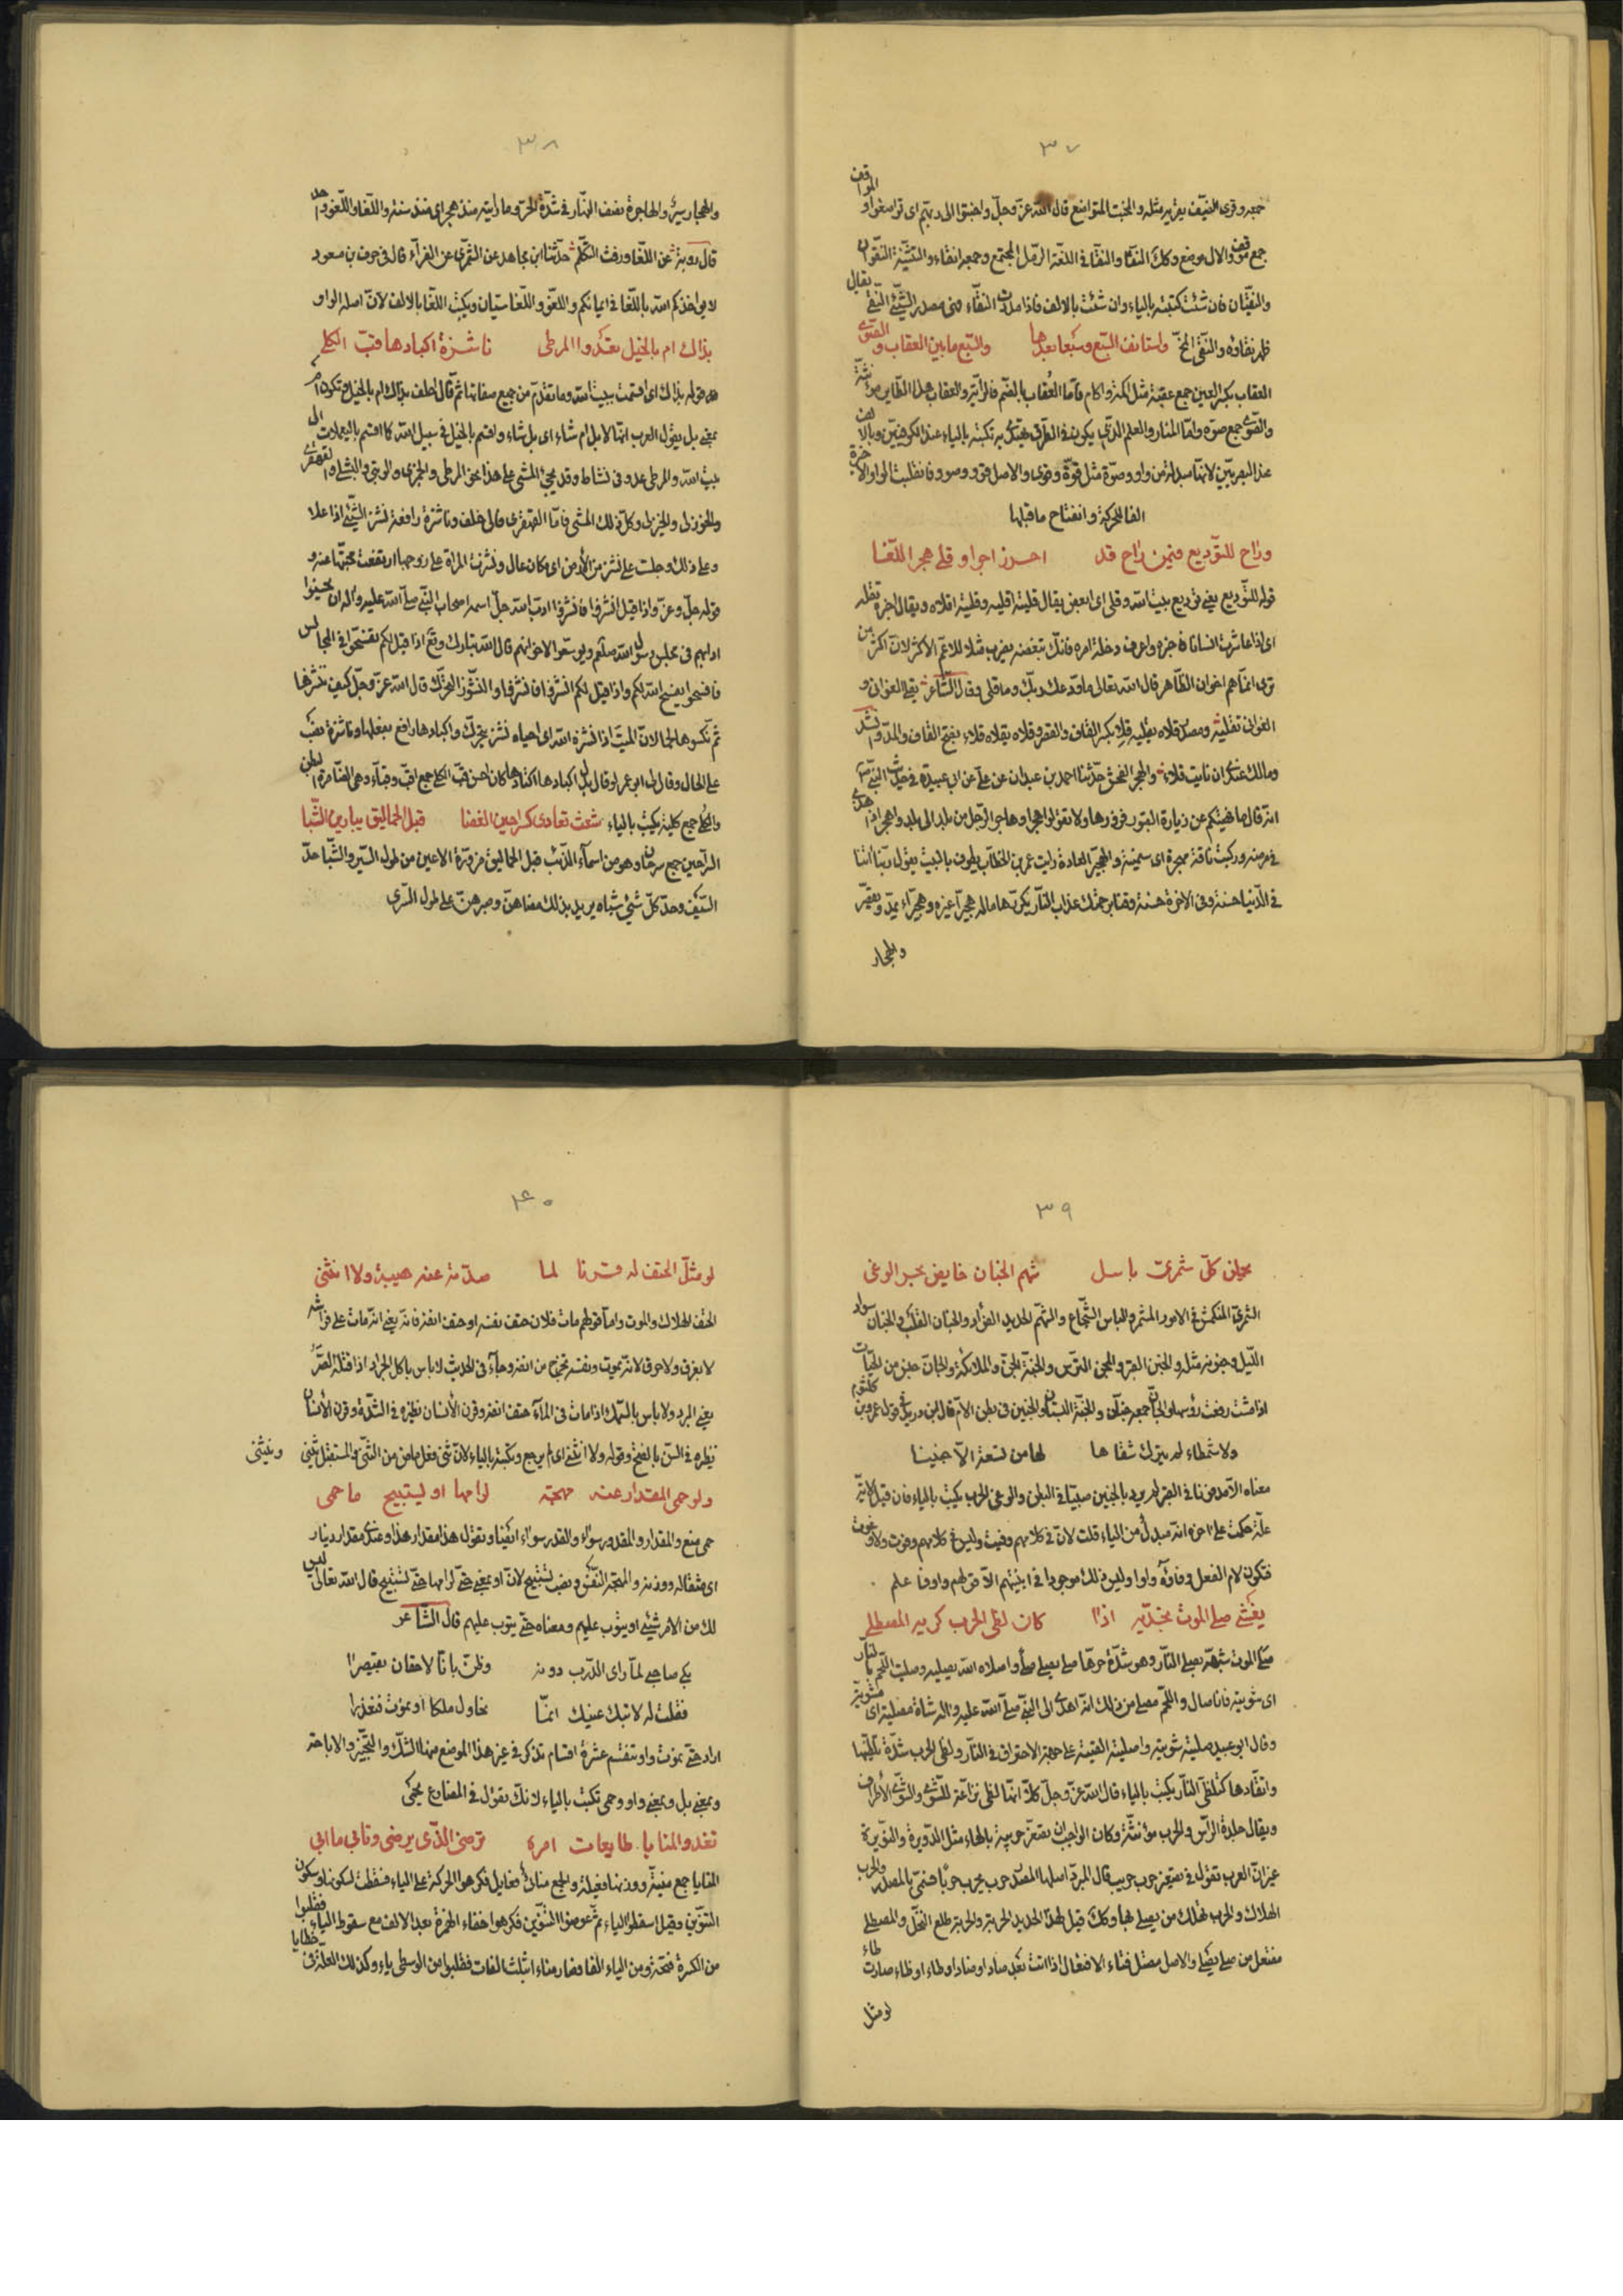 ٣٧
جمعه وقرى الضيف يقريه مثله والمخبت المتواضع قال الله عزّ وجلّ واخبتوا الى ربّهم اى تواضعوا و المواقف
جمع موقف والال موضع وكك النقا والنقا فى اللغة الرّمل المجتمع وجمعه انقاء والتثنية النقوان
والنقيان فان شئت كتبته بالياء وان شئت بالالف فاذا مددت النقاء فهى مصدر الشّيئ النّقى يقال
ظهر نقاؤه والنّقى المخّ واستانف السّبع وسبعا بعدها والسّبع ما بين العقاب و الصّوى
العقاب بكسر العين جمع عقبة مثل اكمة واكام فامّا العُقاب بالضّم فالرّاية والعقاب هذا الطّاير مونثة
والصّوى جمع صوّة وامّا المنار والعلم الذى يكون فى الطّرق يهتدى به تكتبه بالياء عند الكوفيّين وبالالف
عند البصريّين لانّها مبدلة من واو وصوّة مثل قوّة وقوى والاصل قوو وصوو فانقلبت الواو الاخرة
الفا للحركة وانفتاح ما قبلها
وراح للتّوديع فيمن راح قد احرز اجرا وقلى هجر اللّغا
قوله للتّوديع يعنى توديع بيت الله وقلى اى ابغض يقال قليته اقليه وقليته اقلاه ويقال اخبره تقله
اى اذا عاشرت انسانا فاخبره واعرف دخلة امره فانّك تبغضه يضرب مثلا للاعمّ الاكثر لانّ اكثر من
ترى انمّا هم اخوان الظّاهر قال الله تعالى ما ودّعك ربّك وما قلى وقال الشّاعر بقى الغوانى و
الغوانى تقلية ومصدر قلاه يقليه قِلا بكسر القاف والقصر وقلاه يقلاه قلاء بفتح القاف والمدّ وانشد
ومالك عندى ان نايت قلاء والهجر الفحش حدّثنا احمد بن عبدان عن علّى عن ابى عبيدة فى حديث النبىّ ص
انّه قال ما نهيتكم عن زيارة القبور فزوروها ولا تقولوا هجرا وهاجر الرّجل من بلد الى بلد واهجر اذا هذى
فى مرضه وركبت ناقة مهجرة اى سمينة والهجّير العادة رايت عمر بن الخطّاب يطوف بالبيت يقول ربّنا اتنا
فى الدّنيا حسنة وفى الاخرة حسنة وقنا برحمتك عذاب النّار يكرّرها ماله هجّيرا غيره وهجّيراء يمدّ ويقصّر
والهجار
٣٨
والهجار سير والهاجرة نصف النّهار فى شدّة الحرّ وما رايته منذ هجر اى منذ سنة واللّغا واللّغو واحد
قال روبة عن اللّغا ورفث التّكلّم حدّثنا ابن مجاهد عن السّمّرى عن الفرّاء قال فى حرف بن مسعود
لا يؤاخذكم الله باللّغا فى ايمانكم واللغو واللّغا سيّان ويكتب اللّغا بالالف لانّ اصله الواو
بذاك ام بالخيل تعدوا المرطى ناشزة اكبادها قبّ الكلى
قوله بذاك اى اقسمت ببيت الله وما تقدّم من جميع صفاتها ثمّ قال احلف بذاك ام بالخيل وتكون ام
بمعنى بل يقول العرب انّها لا بل ام شاء اى بل شاء واقسم بالخيل فى سبيل الله كما اقسم باليعملات الى
بيت الله والمرطى عدو فى نشاط وقد يجئ المشى على هذا نحو المرطى والجمزى والوثبى والبشكى والقهقرى
والخوزلى والخيزلى وكلّ ذلك المشى فامّا القهقرى فالى خلف وناشزة رافعة نشز الشّيئ اذا علا
وعلى ذلك وجلست على نشز من الأرض اى مكان عال ونشزت المراة على زوجها ارتفعت محبّتها عنه و
قوله جلّ وعزّ واذا قيل انشزوا فانشزوا ادب الله جلّ اسمه اصحاب النّبى صلّى الله عليه واله ان يحسنوا
ادابهم فى مجلس رسول الله صلعم ويوسّعوا لاخوانهم قال الله تبارك وتع اذا قيل لكم تفسّحوا فى المجالس
فافسحوا يفسح الله لكم واذا قيل لكم انشزوا فانشزوا والنّشوز التحرّك قال الله عزّ وجلّ كيف ننشزها
ثمّ نكسوها لحما لانّ الميّت اذا نشزه الله اى احياه نشز يتحرّك واكبادها رافع بفعلها وناشزة نصب
على الحال وقال لى ابو عمر لو قال بدل اكبادها اكتادها كان احسن قبّ الكلى جمع اقبّ وقبّاء وهى الضّامرة البطن
والكُلى جمع كلية يكتب بالياء شعث تعادى كسراحين الغضا قبل الحماليق يبارين الشّبا
السّراحين جمع سرحان وهو من اسمآء الذّئب قبل الحماليق مزورّة الاعين من طول السّير والشّبا حدّ
السّيف وحدّ كلّ شيئ شباه يريد بذلك مضاهنّ وصبرهنّ على طول السّرى
٣٩
يحملن كلّ شمّرى باسل شهم الجنان خايض بحر الوغى
الشّمّرى المنكمش فى الامور المشمّر والباسل الشّجاع والشّهم الحديد الفؤاد والجنان القلب والجنان سواد
اللّيل وجنونه مثله والجنن القبر والمجن التّرس والجنّة الجنّ والملائكة والجانّ جنس من الحيّات
اذا مشت رفعت رؤسها والجانّ جمعه جنّان والجنّة البستان والجنين فى بطن الامّ قال ابن دريد فى قوله عمرو بن كلثوم
ولا شمطاء لم يترك شقاها لها من تسعة الّا جنينا
معناه الّا مدفونا فى القبر لم يرد بالجنين صبيّا فى البطن والوغى الحرب يكتب بالياء فان قيل لايّة
علّة حكمت على اخره انّه مبدل من الياء قلت لانّ فى كلامهم وغيت وليس فى كلامهم وغوت ولا وعوت
فتكون لام الفعل وفاؤه واوا وليس ذلك موجودا فى ابنيتهم الّا قولهم واو فاعلم
يغشى صلى الموت بخدّيه اذا كان لظى الحرب كريه المصطلى
صلى الموت شبّهه بصلى النّار وهو شدّة حرّها صلى يصلى صلا واصلاه الله يصليه وصليت اللّحم بالنّار
اى شويته فانا صال واللّحم مصلى من ذلك انّه اهدى الى النبّى صلّى الله عليه واله شاة مصلية اى مشويّة
وقال ابو عبيد صليته شويته واصليته القيته على جهة الاحتراق فى النّار ولظى الحرب شدّة تلهّبها
واتّقادها كتلظّى النّار يكتب بالياء قال الله عزّ وجلّ كلّا انّها لظى نزّاعة للشّوى والشّوى الأطراف
ويقال جلدة الرّاس والحرب مؤنثّة وكان الواجب ان تصغّر حريبة بالهاء مثل الدّويرة والنّويرة
غير انّ العرب تقول فى تصغير حرب حريب قال المبرّد اصلها المصدر حرب يحرب حربا فسمّى بالمصدر والحرب
الهلاك والحرب تهلك من يصلى بها وكك قيل لهذا الحديد الحربة والحربة طلع النّخل والمصطلى
مفتعل من صلى يصلى والاصل مصتلى فتاء الافتعال اذا اتت بعد صاد او ضاد او طاء او ظاء صارت طاء
لو مثل
٤٠
لو مثّل الحتف له قرنا لما صدّته عنه هيبة ولا انثنى
الحتف الهلاك والموت وامّا قولهم مات فلان حتف نفسه او حتف انفه فانّه يعنى انّه مات على فراشه
لا بغرق ولا حرق لانّه يموت ونفسه تخرج من انفه وجآء فى الحديث لا باس باكل الجراد اذا قتله الصّرّ
يعنى البرد ولا باس بالسّمك اذا مات فى المآء حتف انفه وقرن الأنسان نظيره فى الشدّة وقرن الأنسان
نظيره فى السنّ بالفتح وقوله ولا انثنى اى لم يرجع وتكتبه بالياء لانّ ثنى وفعل ماض من الثّنى والمستقبل يثنى وينثنى
ولو حمى المقدار عنه مهجة لرامها او يستبيح ما حمى
حمى منع والمقدار والمقدور سواء والقدر سواء ايضا وتقول هذا مقدار هذا وعندى مقدار دينار
اى مثقاله ووزنه والمهجة النّفس ونصب تستبيح لانّ او بمعنى حتّى لرامها حتّى تستبيح قال الله تعالى ليس
لك من الامر شيئى او يتوب عليهم ومعناه حتّى يتوب عليهم قال الشّاعر
بكى صاحبى لمّا راى الدّرب دونه وظنّ بانّا لاحقان بقيصرا
فقلت له لا تبك عينيك انمّا نحاول ملكا او نموت فنعذرا
اراد حتّى نموت واو تنقسم عشرة اقسام تذكر فى غير هذا الموضع منها الشّكّ والتّخيير والاباحة
وبمعنى بل وبمعنى واو وحمى تكتب بالياء لانّك تقول فى المضارع يحمى
تغدو المنايا طايعات امره ترضى الذّى يرضى وتابى ما ابى
المنايا جمع منيّة ووزنها فعيلة والجمع منائى فعايل فكرهوا الحركة على الياء فسقطت لسكونها وسكون
التنوين وقيل اسقطوا الياء ثمّ عوضوا التّنوين فكرهوا خفاء الهمزة بعد الالف مع سقوط الياء فقلبوا
من الكسرة فتحة ومن الياء الفا فصار مناءا بثلث الفات فقلبوا من الوسطى ياء وكذلك العلّة فى خطايا